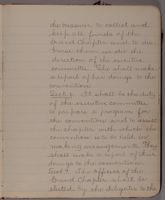 the treasurer to collect and
keep all funds of the
Grand Chapter and to dis-
burse them under the
direction of the executive
committee. She shall make
a report of her doings to the
convention.
Sect. 8. It shall be the duty
of the executive committee
to prepare a program for
the convention and to assist
the chapter with which the
convention is to be held in
making arrangements. They
shall make a report of their
doings to the convention.
Sect. 9. The officers of the
Grand Chapter shall be
elected by the delegates to the